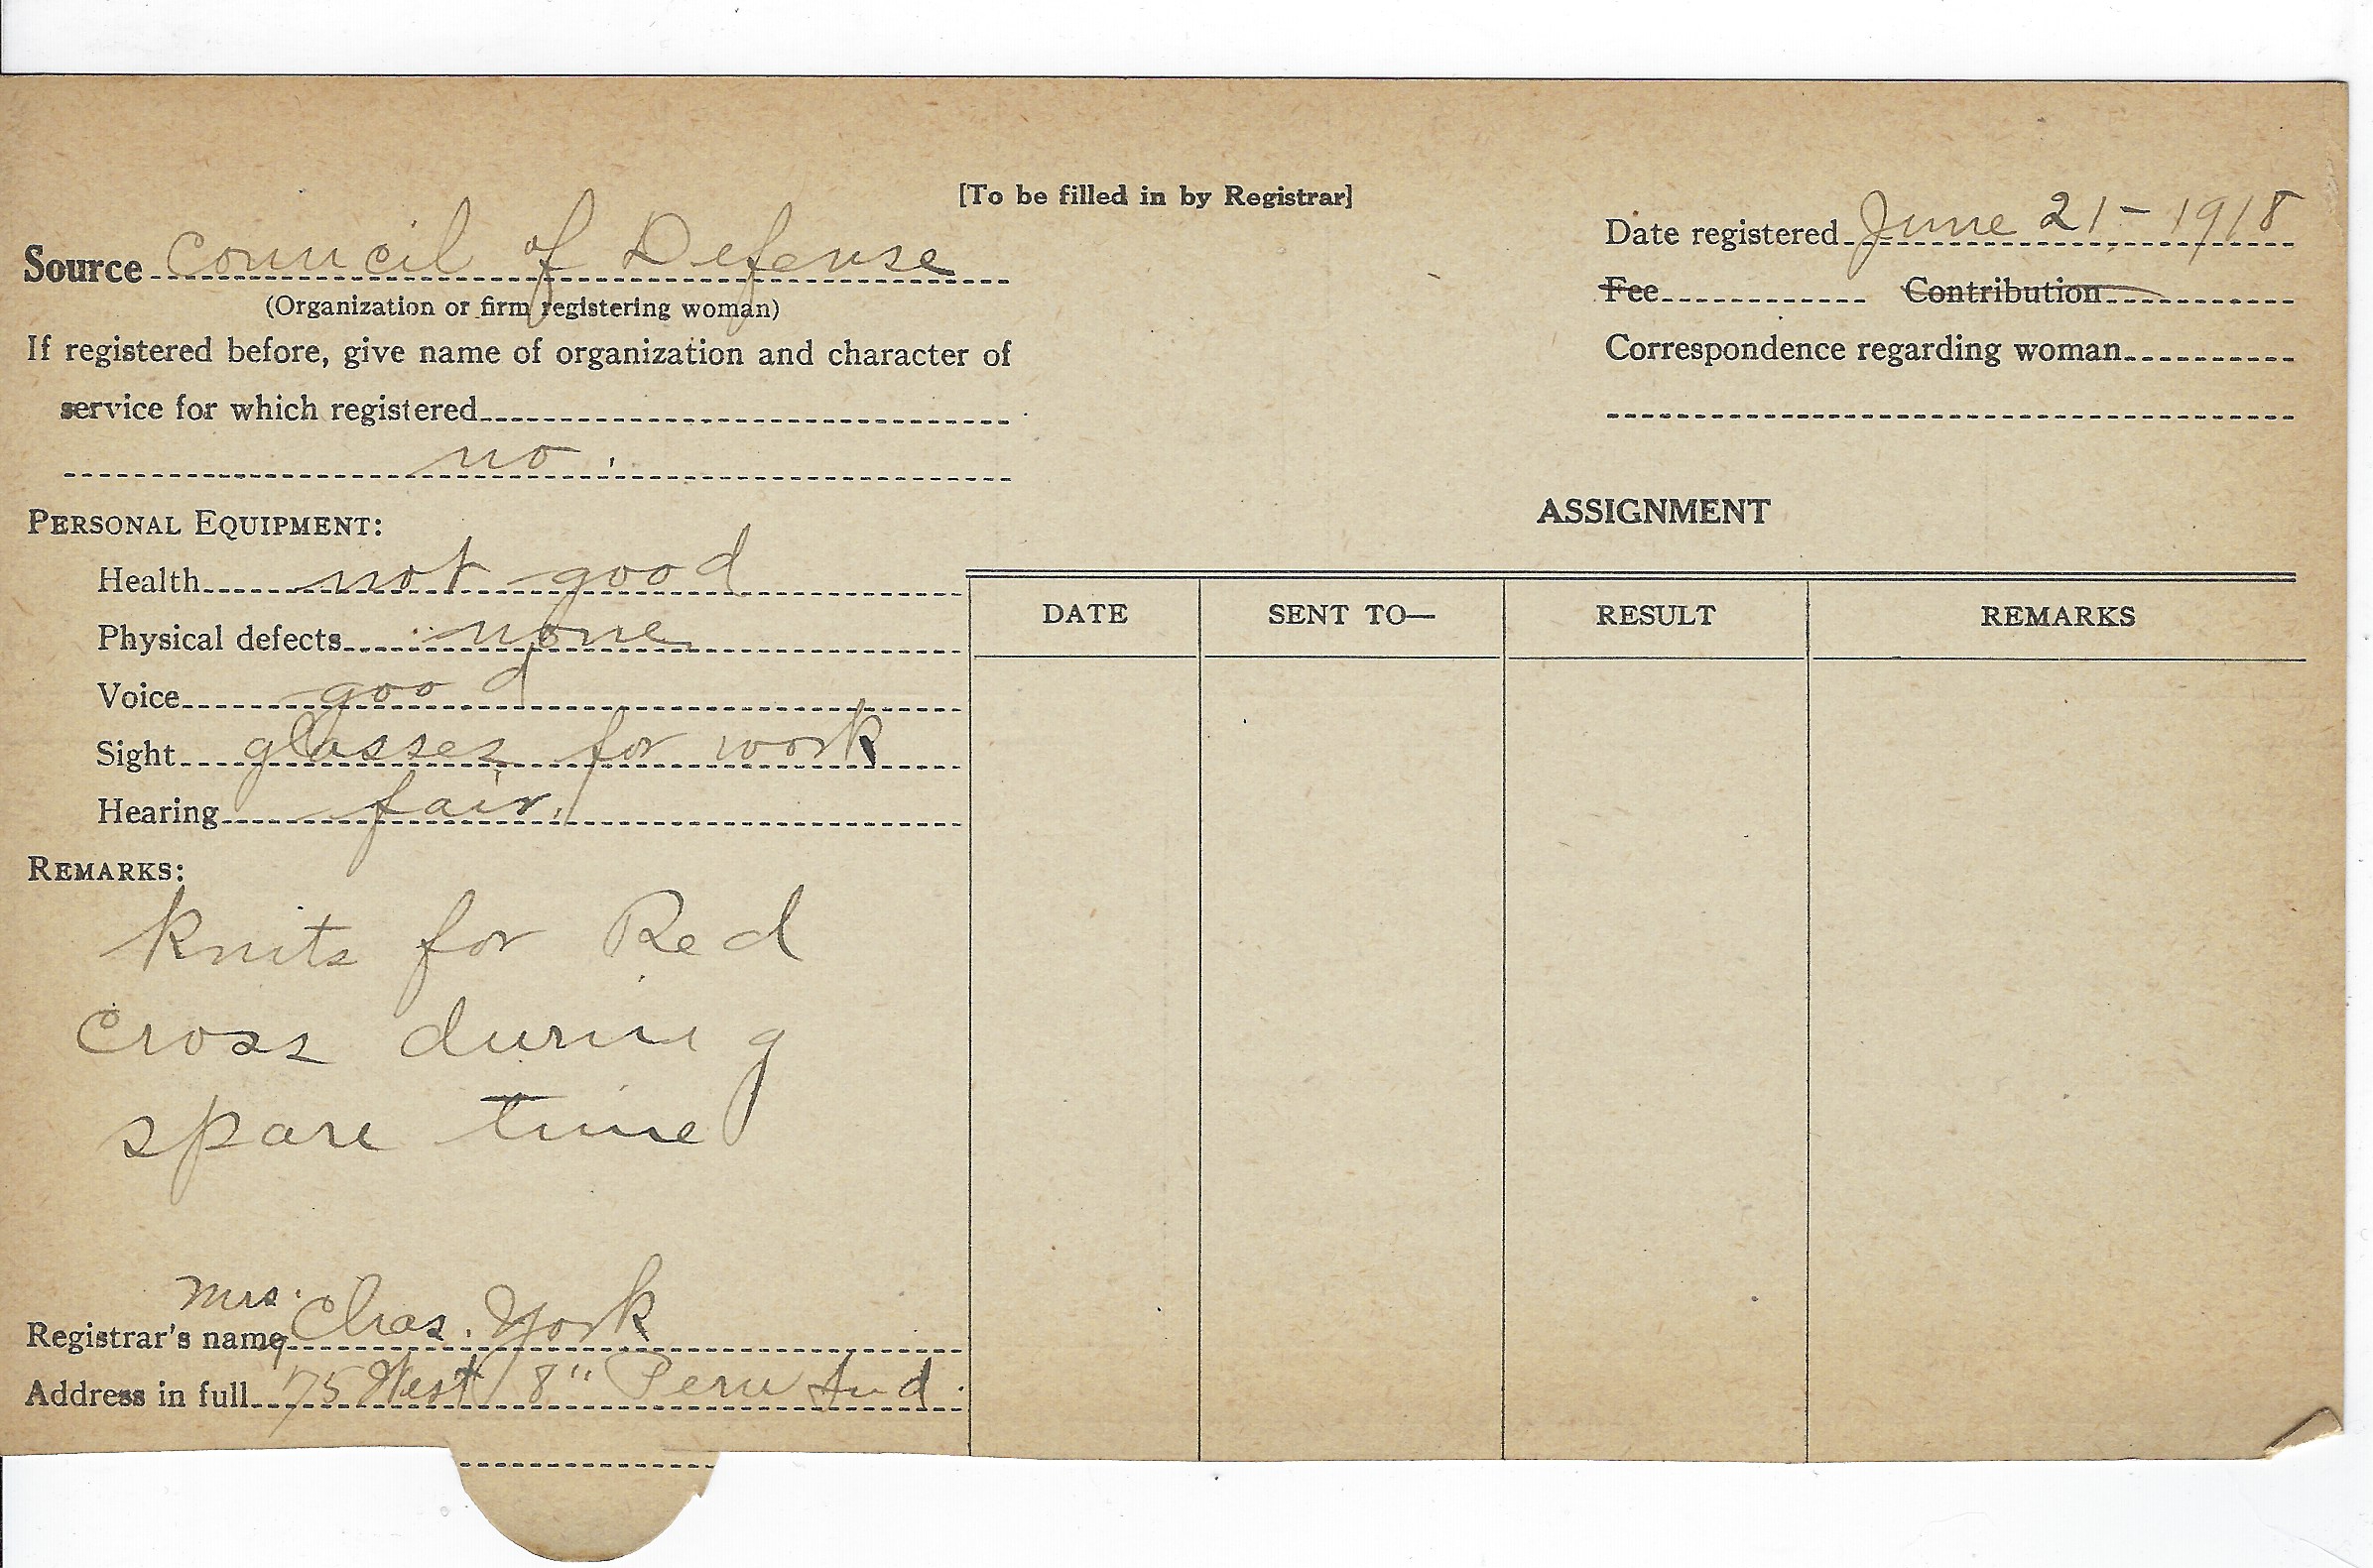 [To be filled in by Registrar]
Source Council of Defense
(Organization or firm registering woman)
If registered before, give name of organization and character of
service for which registered
no.
PERSONAL EQUIPMENT:
Health not good
Physical defects none
Voice good
Sight glasses for work
Hearing fair.
REMARKS:
Knits for Red
Cross during
spare time
Mrs.
Registrar's name Chas. York
Address in full 75 West 8" Peru Ind.
Date registered June 21 - 1918
Fee Contribution
Correspondence regarding woman
ASSIGNMENT
DATE SENT TO— RESULT REMARKS